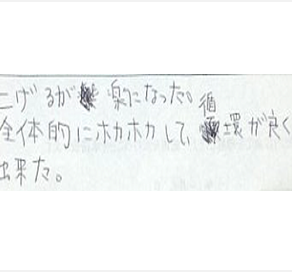 こげるが楽になった。
全体的にホカホカして、循環が良く
出来た。